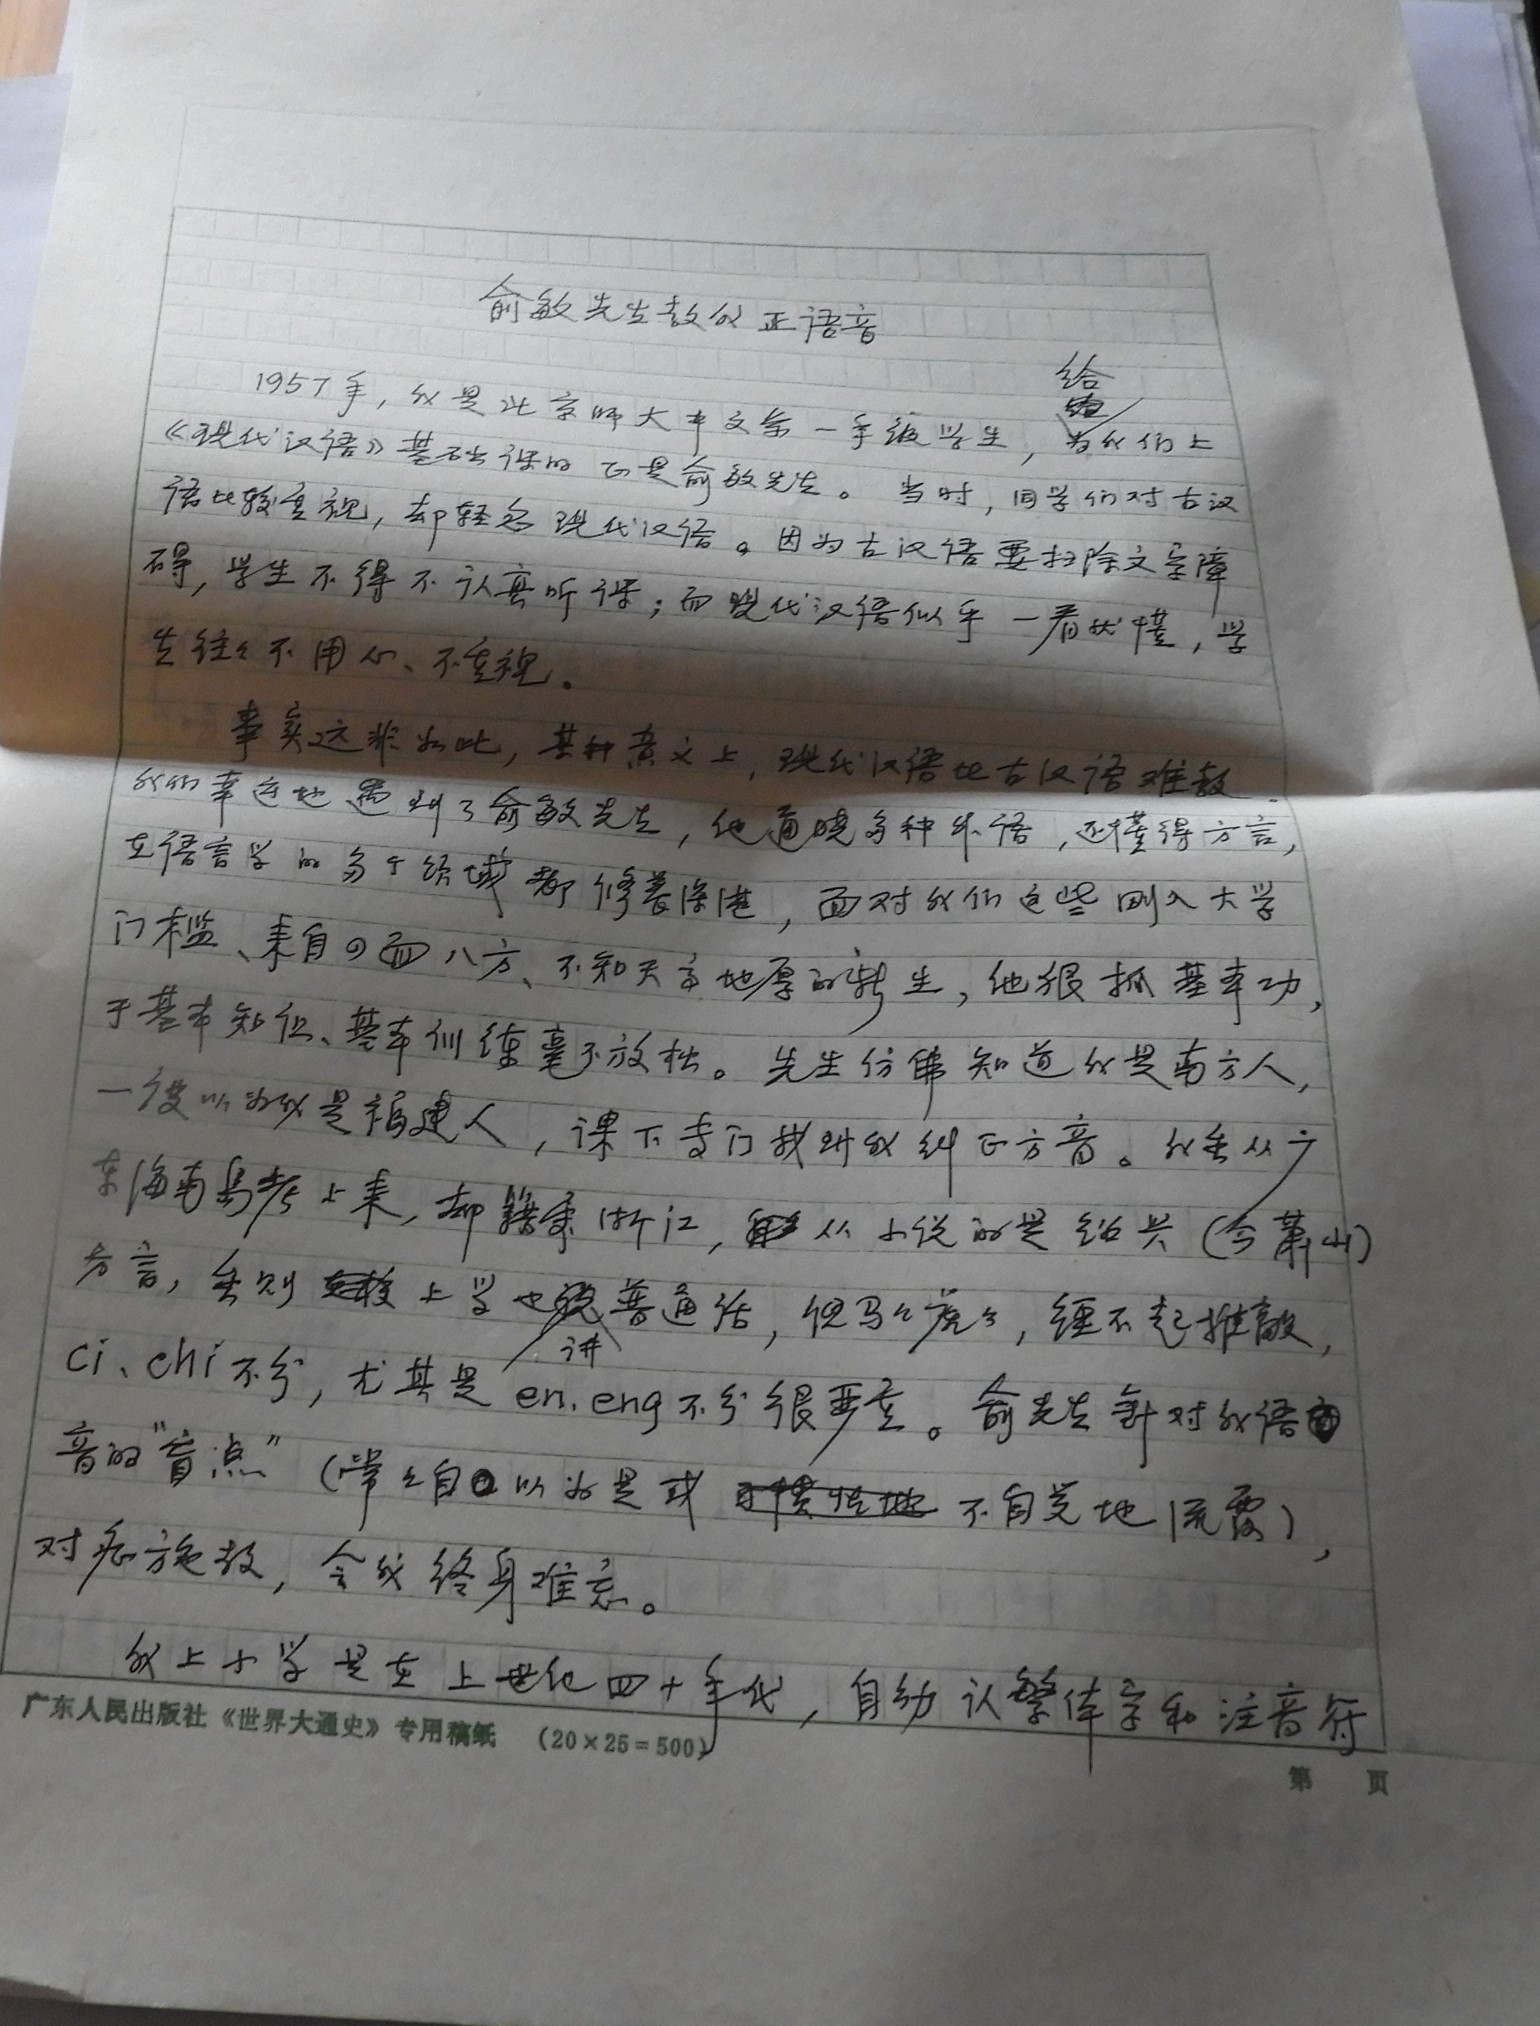 俞敏先生教我正语音
给
1957年，我是北京师大中文系一年级学生，为我们上
《现代汉语》基础课的正是俞敏先生。当时，同学们对古汉
语比较重视，却轻忽现代汉语。因为古汉语要扫除文字障
碍，学生不得不认真听课；而现代汉语似乎一看就懂，学
生往往不用心、不重视。
事实远非如此，某种意义上，现代汉语比古汉语难教。
我们幸运地遇到了俞敏先生，他通晓多种外语，还懂得方言，
在语言学的多个领域都修养深湛，面对我们这些刚入大学
门槛、来自四面八方、不知天高地厚的新生，他狠抓基本功，
于基本知识、基本训练毫不放松。先生仿佛知道我是南方人，
一度以为我是福建人，课下专门找到我纠正方音。我虽从广
东海南岛考上来，却籍隶浙江，从小说的是绍兴（今萧山）
方言，虽则上学也说普通话，但马马虎虎，经不起推敲，
讲
ci、chi不分，尤其是en、eng不分很严重。俞先生针对我语
音的“盲点”（常常自以为是或不自觉地流露），
对症施教，令我终身难忘。
我上小学是在上世纪四十年代，自幼认繁体字和注音符
广东人民出版社《世界大通史》专用稿纸 （20×25=500）
第 页